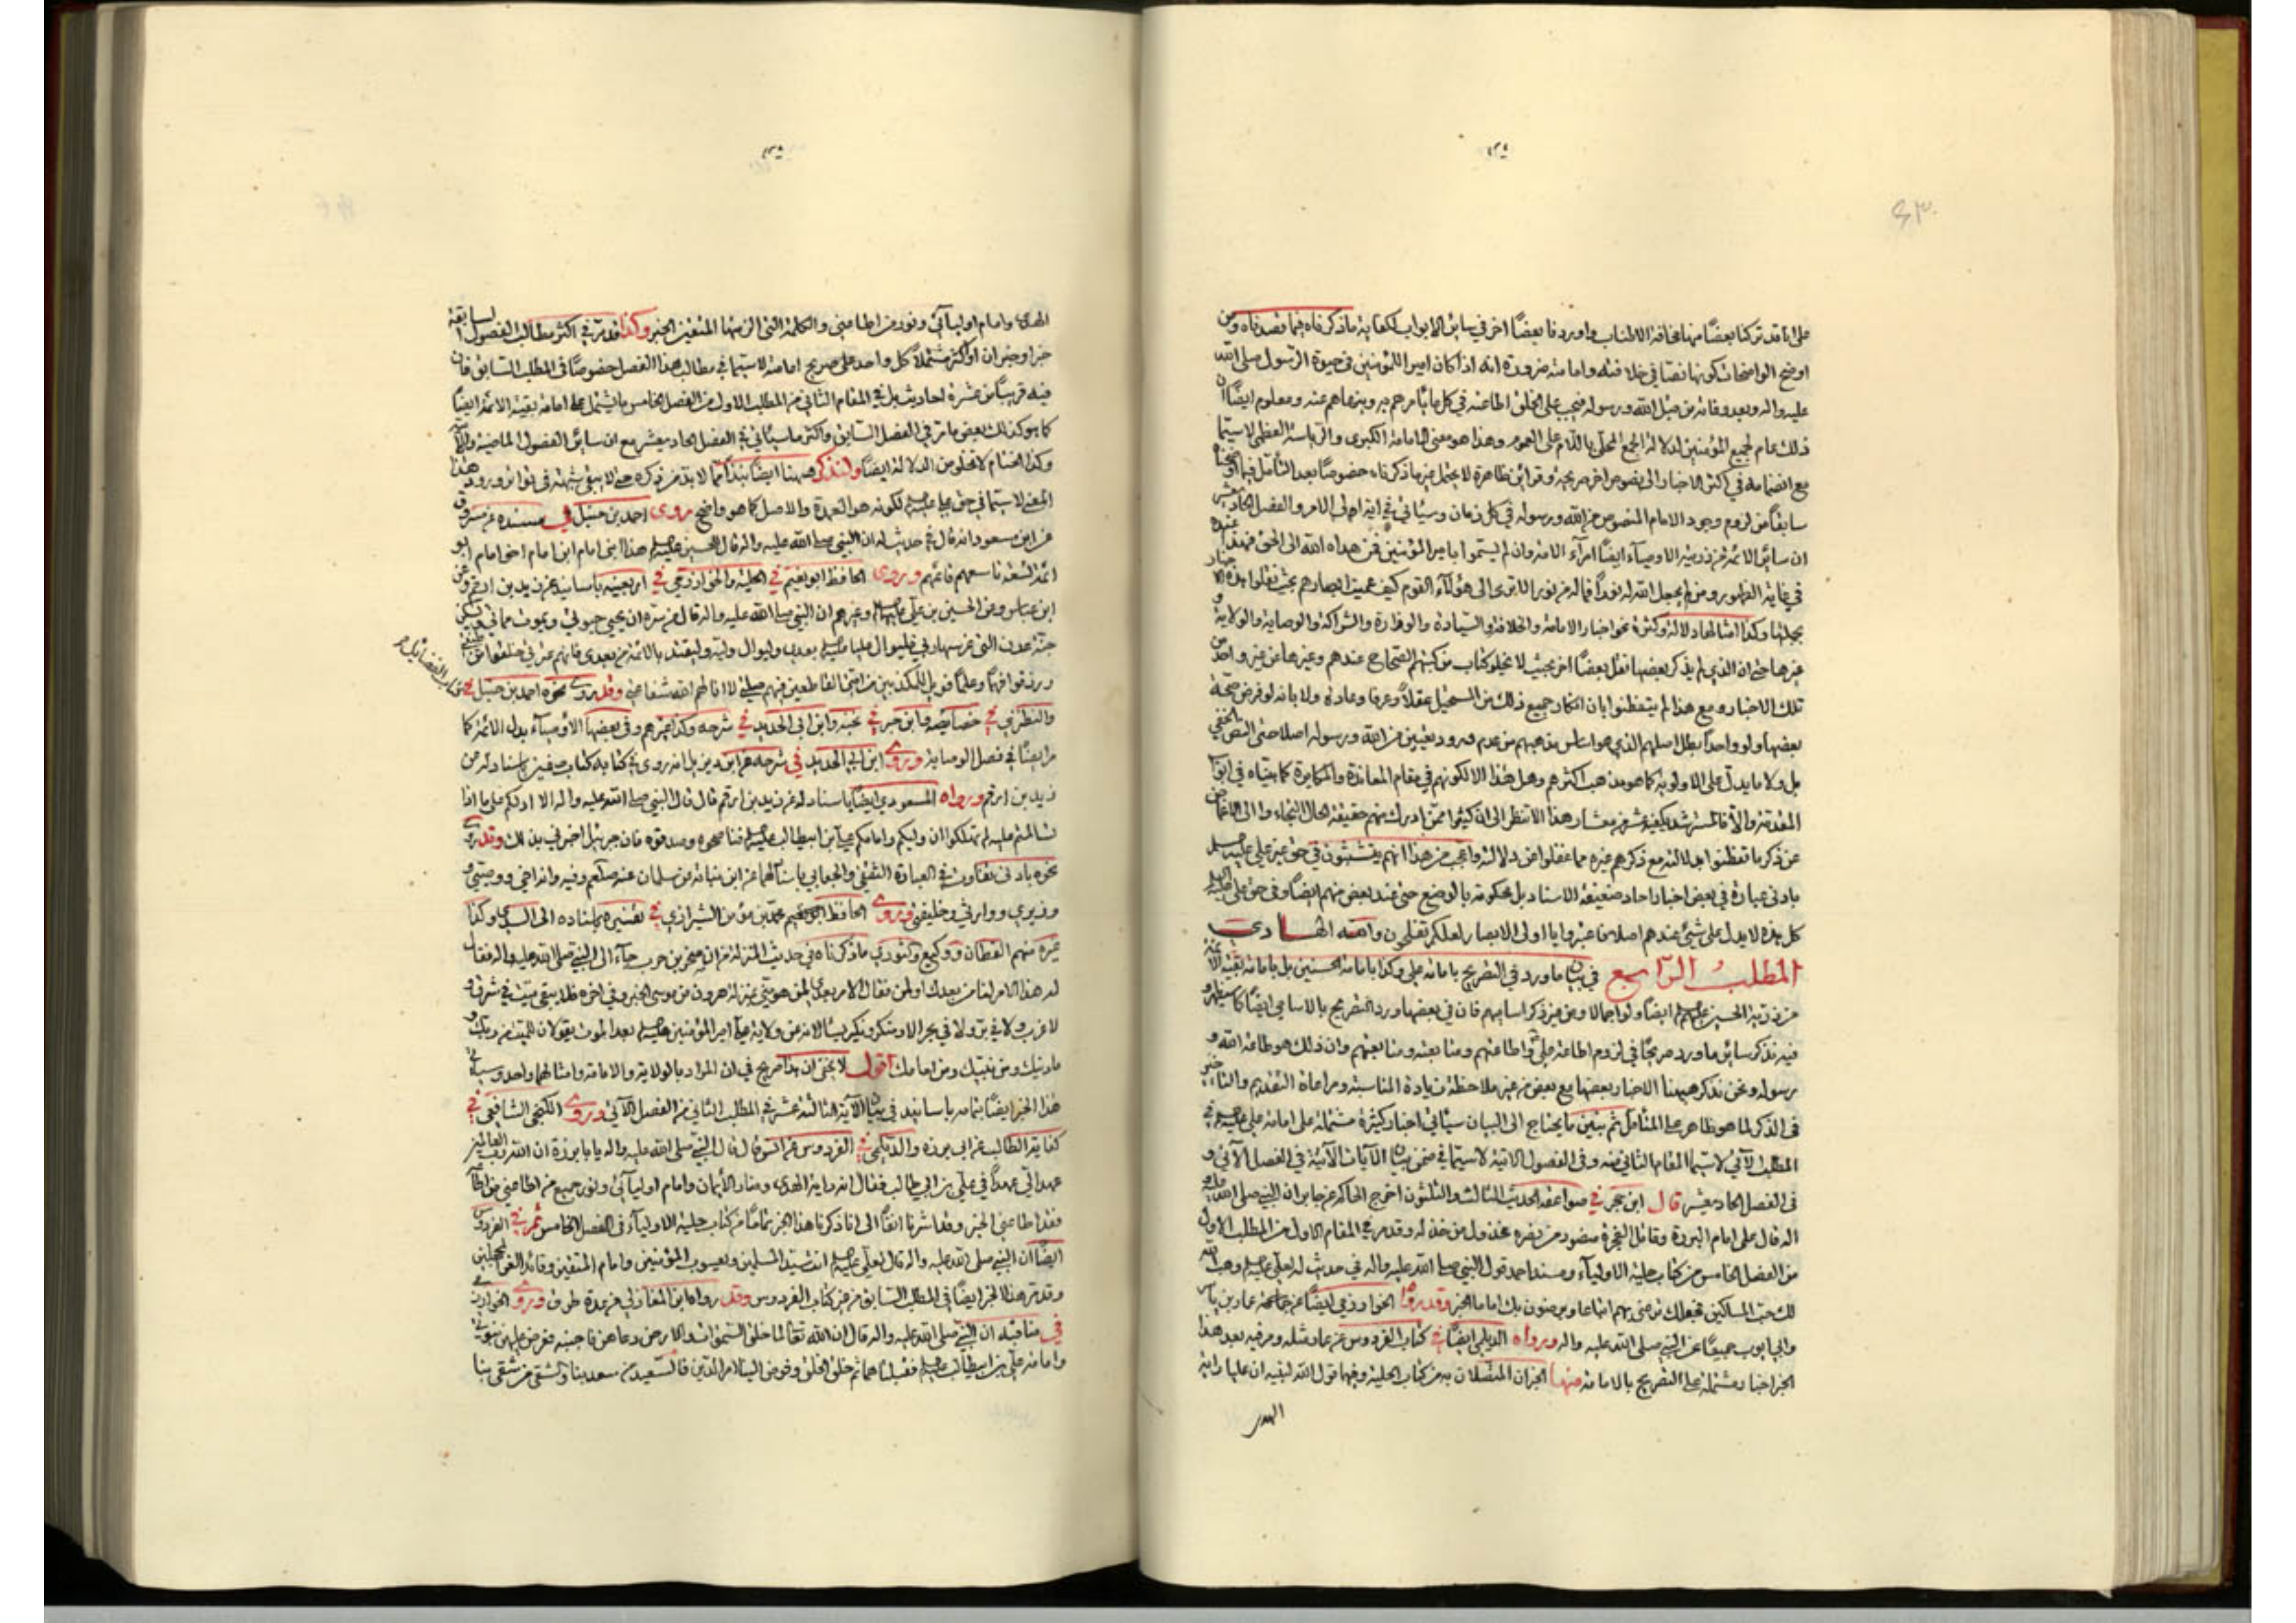 على انا قد تركنا بعضًا منها مخافة الاطناب واوردنا بعضًا اخر في سائر الابواب لكفاية ما ذكرناه فيما قصدناه ومن
اوضح الواضحات كونها نصا في خلافته وامامته ضرورة انه اذا كان امير المؤمنين في حيوة الرسول صلى الله
عليه واله وبعد وفاته من قبل الله ورسوله فيجب على الخلق اطاعته في كل ما يأمرهم به وينهاهم عنه ومعلوم ايضًا ان
ذلك عام لجميع المؤمنين لدلالة الجمع المحلى باللام على العموم وهذا هو معنى الامامة الكبرى والرياسة العظمى لاسيما
مع انضمامه في اكثر الاخبار الى نصوص اخر صريحة وقرائن ظاهرة لا يحتمل غير ما ذكرناه خصوصًا بعد التأمل فيما
سابقًا من لزوم وجود الامام المنصوص من الله ورسوله في كل زمان وسيأتي في اية اولي الامر والفصل الحاديعشر
ان سائر الائمة من ذريته الاوصياء ايضًا امرآء الامة وان لم يسموا بامير المؤمنين فمن هداه الله الى الحق فهذا عنده
في غاية الظهور ومن لم يجعل الله له نورًا فماله من نور الا ترى الى هؤلاء القوم كيف عميت ابصارهم بحيث نقلوا هذه الاخبار
بجملتها وكذا امثالها دلالة وكثرة نحو اخبار الامامة والخلافة والسيادة والوزارة والشراكة والوصاية والولاية و
غيرها حتى ان الذي لم يذكر بعضها نقل بعضًا اخر بحيث لا يخلو كتاب من كتبهم الصحاح عندهم وغيرها عن غير واحد من
تلك الاخبار ومع هذا لم يتفطنوا بان انكار جميع ذلك من المستحيل عقلًا وعرفا وعادة ولا بانه لو فرض صحة
بعضها ولو واحدًا بطل اصلهم الذي هو اساس مذهبهم من عدم ورود تعيين من الله ورسوله اصلا حتى النص الخفي
بل ولا ما يدل على الاولوية كما هو مذهب اكثرهم وهل هذا الا لكونهم في مقام المعاندة والمكابرة كما بيناه في ابواب
المقدمة والا فالمسترشد يكفيه عشر من معشار هذا الا تنظر الى ان كثيرا ممن ادرك منهم حقيقة الحال التجاء الى الاغماض
عن ذكر ما تفطنوا بدلالته مع ذكرهم غيره مما غفلوا عن دلالته واعجب من هذا انهم يتشبثون في حق غير علي عليه السلام
بادنى عبارة في بعض اخبار احاد ضعيفة الاسناد بل محكومة بالوضع حتى عند بعض منهم ايضًا وفي حق علي عليه السلام
كل هذه لا يدل على شيئ عندهم اصلا فاعتبروا يا اولى الابصار لعلكم تفلحون والله الهادي
المطلب الرابع في بيان ما ورد في التصريح بامامة علي وكذا بامامة الحسنين بل بامامة بقية الائمة
من ذرية الحسين عليهم السلام ايضًا ولو اجمالا ومن غير ذكر اساميهم فان في بعضها ورد التصريح بالاسامي ايضًا كما سيظهر و
فيه نذكر سائر ما ورد صريحًا في لزوم اطاعة علي واطاعتهم ومتابعته ومتابعتهم وان ذلك هو طاعة الله و
رسوله ونحن نذكر هيهنا الاخبار بعضها مع بعض من غير ملاحظة زيادة المناسبة ومراعاة التقديم والتأخير
في الذكر لما هو ظاهر على المتأمل ثم نبين ما يحتاج الى البيان سيأتي اخبار كثيرة مشتملة على امامة علي عليه السلام في
المطلب الآتي لاسيما المقام الثاني منه وفي الفصول الاتية لاسيما في ضمن بيان الآيات الآتية في الفصل الآتي و
في الفصل الحاديعشر قال ابن حجر في صواعقه الحديث الثالث والثلثون اخرج الحاكم عن جابر ان النبي صلى الله عليه و
اله قال علي امام البررة وقاتل الفجرة منصور من نصره مخذول من خذله وقد مر في المقام الاول من المطلب الاول
من الفصل الخامس من كتاب حلية الاولياء ومسند احمد قول النبي صلى الله عليه واله في حديث له لعلي عليه السلام وهب الله
لك حب المساكين فجعلك ترضى بهم اتباعا ويرضون بك اماما الخبر وقد روى الخوارزمي ايضًا عن جماعة عمار بن ياسر
وابي ايوب جميعًا عن النبي صلى الله عليه واله ورواه الديلمي ايضًا في كتاب الفردوس عن عمار مثله ومر فيه بعد هذا
الخبر اخبار مشتملة على التصريح بالامامة منها الخبران المتصلان به من كتاب الحلية وفيها قول الله لنبيه ان عليا راية
الهدى
الهدى وامام اوليآئي ونور من اطاعني والكلمة التي الزمتها المتقين الخبر وكذا قد مر في اكثر مطالب الفصول السابقة
خبر او خبران او اكثر مشتملًا كل واحد على صريح امامته لاسيما في مطالب هذا الفصل خصوصًا في المطلب السابق فان
فيه قريبًا من عشرة احاديث بل في المقام الثاني من المطلب الاول من الفصل الخامس ما يشتمل على امامة بقية الائمة ايضًا
كما هو كذلك بعض ما مر في الفصل السابق واكثر ما سيأتي في الفصل الحاديعشر مع ان سائر الفصول الماضية والآتية
وكذا الختام لا تخلو من الدلالة ايضًا ولنذكر هيهنا ايضًا نبذًا مما لا بد من ذكره حتى لا يبقى شبهة في تواتر ورود هذا
المعنى لاسيما في حق علي عليه السلام لكونه هو العمدة والاصل كما هو واضح روى احمد بن حنبل في مسنده عن مسروق
عن ابن مسعود انه قال في حديث له ان النبي صلى الله عليه واله قال للحسين عليه السلام هذا ابنى امام ابن امام اخو امام ابو
ائمة التسعة تاسعهم قائمهم وروى الحافظ ابو نعيم في الحلية والخوارزمي في اربعينه باسانيد عن زيد بن ارقم وعن
ابن عباس وعن الحسين بن علي عليهما السلام وغيرهم ان النبي صلى الله عليه واله قال من سره ان يحيى حيوتي ويموت مماتي ويسكن
جنة عدن التي غرسها ربي فليوال عليا عليه السلام بعدي وليوال وليه وليقتد بالائمة من بعدي فانهم عترتي خلقوا من طينتي
ورزقوا فهمًا وعلمًا فويل للمكذبين من امتي القاطعين فيهم صلتي لا انالهم الله شفاعتي وقد روى نحوه احمد بن حنبل في
كتاب الفضائل
والنطنزي في خصائصه وابن جبر في نخبه وابن ابي الحديد في شرحه وكذا غيرهم وفي بعضها الاوصيآء بدل الائمة كما
مر ايضًا في فصل الوصاية وروى ابن ابي الحديد في شرحه عن ابن ديزيل انه روى في كتابه كتاب صفين باسناد له عن
زيد بن ارقم ورواه المسعودي ايضًا باسناد له عن زيد بن ارقم قال قال النبي صلى الله عليه واله الا ادلكم على ما اذا
تسالمتم عليه لم تهلكوا ان وليكم وامامكم علي بن ابيطالب عليه السلام فناصحوه وصدقوه فان جبرئيل اخبرني بذلك وقد روى
نحوه بادنى تفاوت في العبارة الثقفي والجعابي باسنادهما عن ابن نباتة عن سلمان عنه صلعم وفيه وانه اخي ووصيي و
وزيري ووارثي وخليفتي وروى الحافظ محمد بن مؤمن الشيرازي في تفسيره باسناده الى السدي وكذا
غيره منهم القطان ووكيع والثوري ما ذكرناه في حديث المنزلة من ان صخر بن حرب جآء الى النبي صلى الله عليه واله فقال
له هذا الامر لنا من بعدك او لمن فقال الامر بعدي لمن هو مني بمنزلة هرون من موسى الخبر وفي اخره فلا يبقى ميت في شرق و
لا غرب ولا في بر ولا في بحر الا ومنكر ونكير يسئالانه عن ولاية علي امير المؤمنين عليه السلام بعد الموت يقولان للميت من ربك و
ما دينك ومن نبيك ومن امامك اقول لا يخفى ان هذا صريح في ان المراد بالولاية والامامة وامثالهما واحد وسيأتي
هذا الخبر ايضًا بتمامه باسانيد في بيان الآية الثالثة عشر في المطلب الثاني من الفصل الآتي وروى الكنجي الشافعي في
كفاية الطالب عن ابي برزة والديلمي في الفردوس عن انس قال قال النبي صلى الله عليه واله يا ابا برزة ان الله رب العالمين
عهد الي عهدًا في علي بن ابي طالب فقال انه راية الهدى ومنار الأيمان وامام اوليآئي ونور جميع من اطاعني من اطاعه
فقد اطاعني الخبر وقد اشرنا انفًا الى انا ذكرنا هذا الخبر تمامًا من كتاب حلية الاوليآء في الفصل الخامس ثم في الفردوس
ايضًا ان النبي صلى الله عليه واله قال لعلي عليه السلام انت سيد المسلمين ويعسوب المؤمنين وامام المتقين وقائد الغر المحجلين
وقد مر هذا الخبر ايضًا في المطلب السابق من غير كتاب الفردوس وقد رواه ابن المغازلي من عدة طرق وروى الخوارزمي
في مناقبه ان النبي صلى الله عليه واله قال ان الله تعالى لما خلق السموات والارض دعاهن فاجبنه فعرض عليهن نبوتي
وامامة علي بن ابيطالب عليه السلام فقبلتاهما ثم خلق الخلق وفوض الينا امر الدين فالسعيد من سعد بنا والشقي من شقي بنا